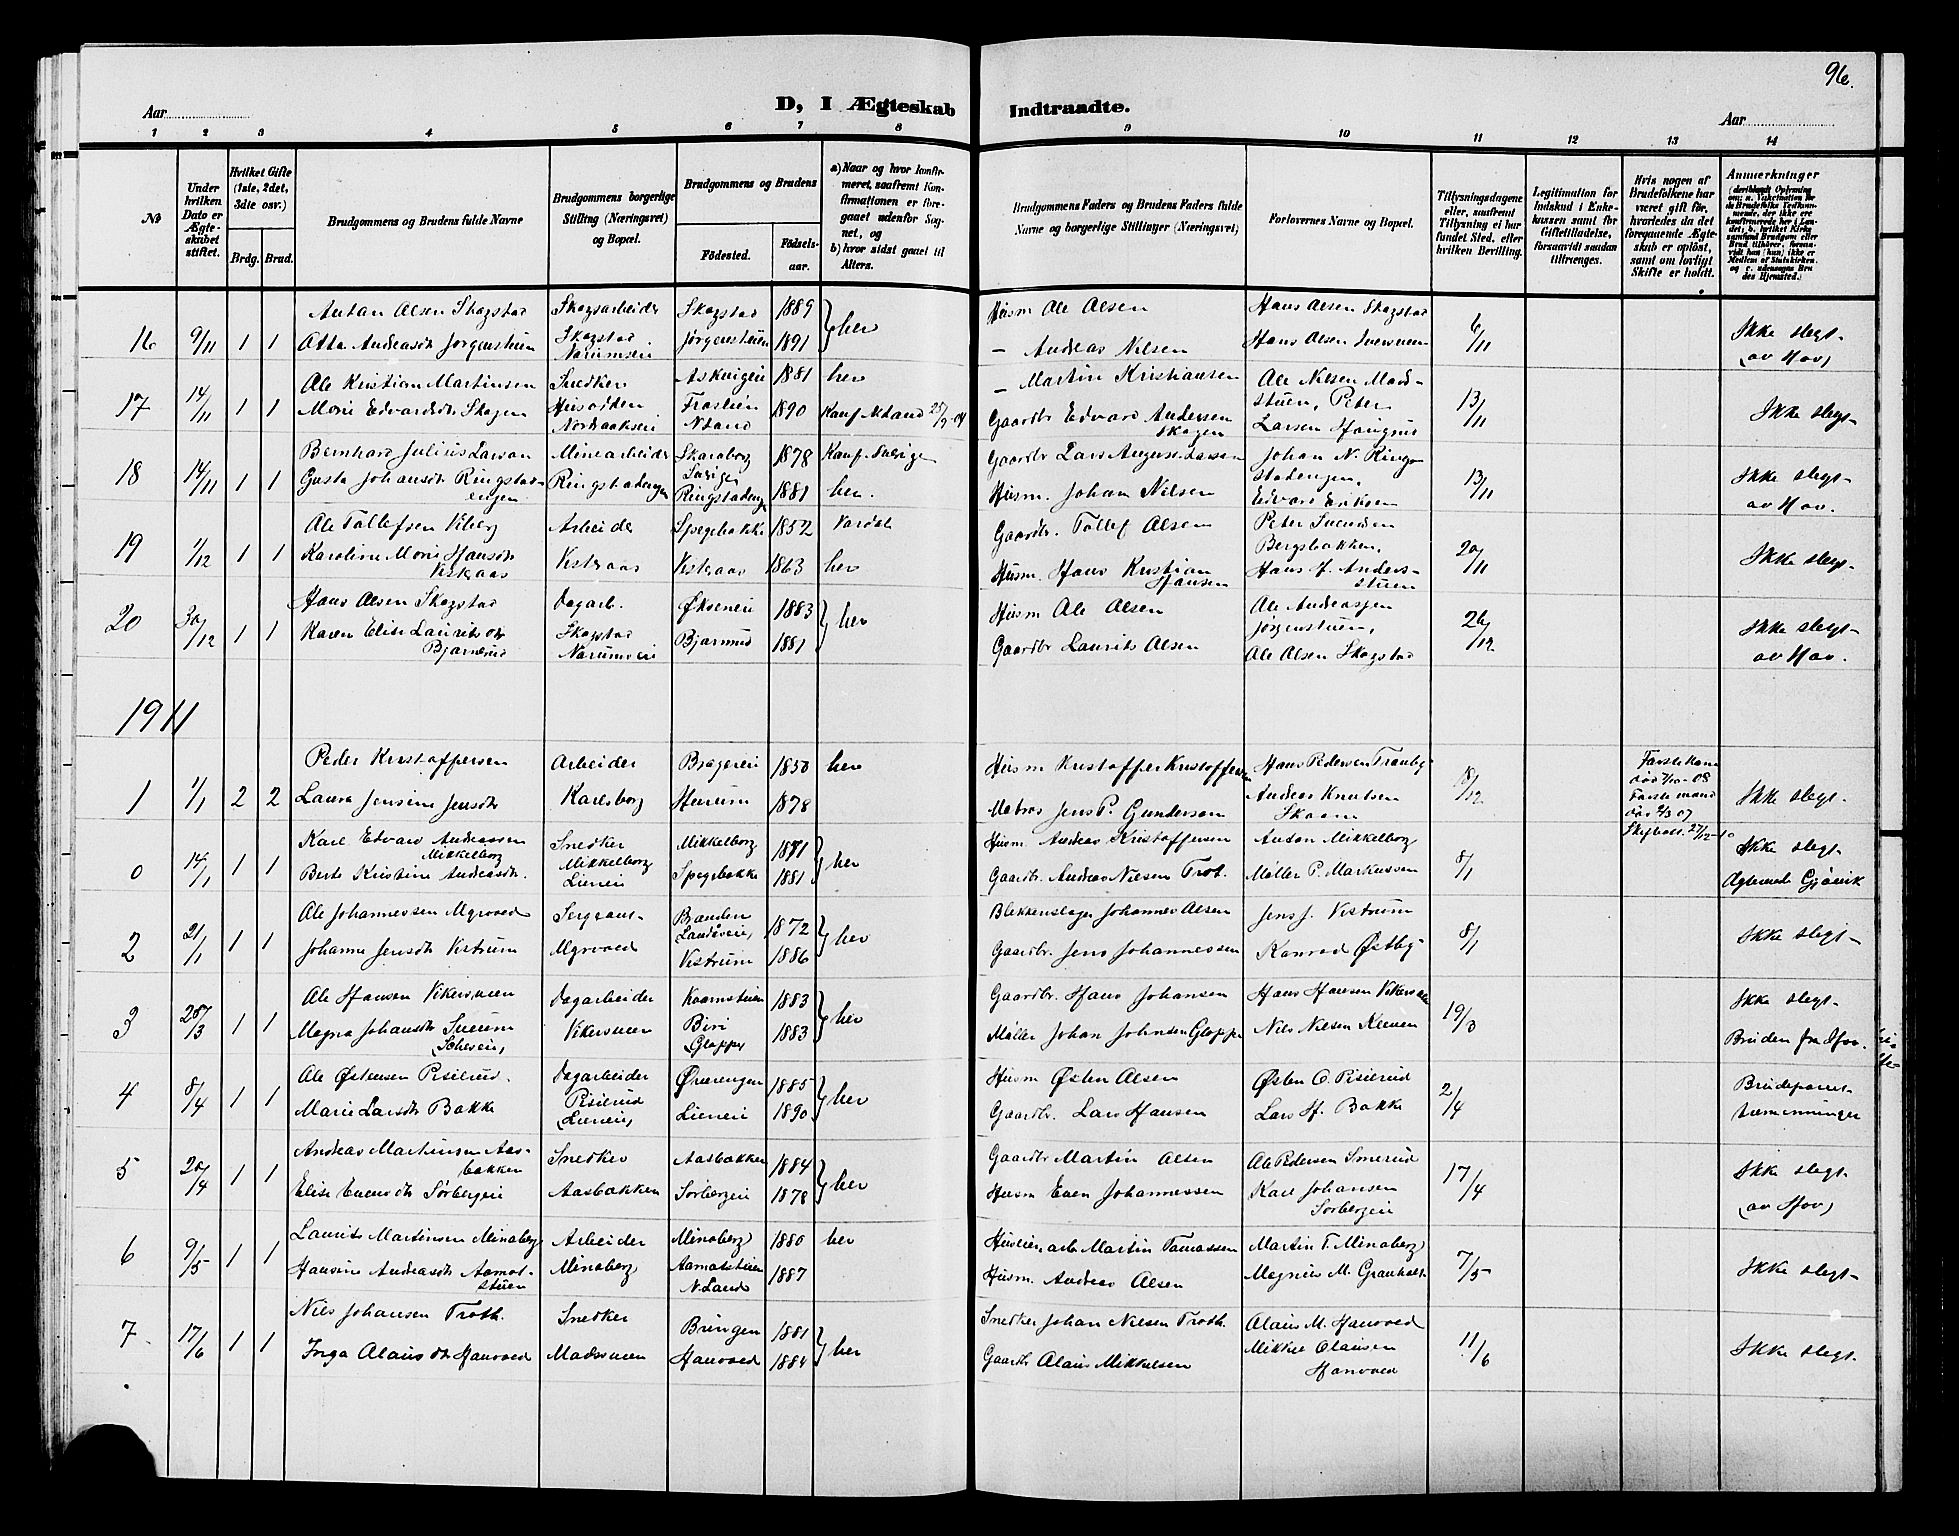 96.
Aar
D, I Ægteskab
Indtraadte.
Aar
1 2 3 4 5 6 7 8 9 10 11 12 13 14
No
Under hvilken Dato er Ægteskabet stiftet.
Hvilket Gifte (1ste, 2det, 3die osv.)
Brdg. Brud.
Brudgommens og Brudens fulde Navne
Brudgommens borgerlige Stilling (Næringsvei) og Bopæl.
Brudgommens og Brudens
Fødested.
Fødselsaar.
a) Naar og hvor konfirmeret, saafremt Konfirmationen er foregaaet udenfor Sognet, og
b) hvor sidst gaaet til Alters.
Brudgommens Faders og Brudens Faders fulde Navne og borgerlige Stillinger (Næringsvei)
Forlovernes Navne og Bopæl.
Tillysningsdagene eller, saafremt Tillysning ei har fundet Sted, efter hvilken Bevilling.
Legitimation for Indskud i Enkekassen samt for Giftetilladelse, forsaavidt saadan tiltrænges.
Hvis nogen af Brudefolkene har været gift før, hvorledes da det foregaaende Ægteskab er opløst, samt om lovligt Skifte er holdt.
Anmerkninger
16 9/11 1 1 Anton Olsen Skogstad Skogsarbeider Skogstad 1889 } her Husm Ole Olsen Hans Olsen Skogstad 6/11 Ikke slegt
Otto Andreasdt Jørgenstuen Skogstad Narumseie Jørgenstuen 1891 – Andreas Nilsen Hans Olsen (av Hov)
17 14/11 1 1 Ole Kristian Martinsen Snedker 1881 her – Martin Kristiansen Ole Nilsen Mads- 13/11 Ikke slegt
Marie Edvardsdt Skogen 1890 Konf N Land Gaardbr Edvard Andersen Skogen stuen, Peter Larsen
18 14/11 1 1 Bernhard Julius Larson Minearbeider Skaraborg Sverige 1878 Konf. Sverige Gaardbr Lars August Larson Johan N. Ring- 13/11 Ikke slegt
Gusta Johansdt Ringstadengen Ringstadengen Ringstadeng 1881 her. Husm. Johan Nilsen stadengen, Edvard Eriksen av Hov.
19 1/12 1 1 Ole Tollefsen Viberg Arbeider Spegebakke 1852 Vardal Gaardbr. Tollef Olsen Peter Svendsen Bergsbakken, 20/11 Ikke slegt
Karoline Marie Hansdt Vestraas Vestraas Vestraas 1863 her Husm. Hans Kristian Hansen Hans J. Andersstuen
20 30/12 1 1 Hans Olsen Skogstad Dagarb. Økseneie 1883 } her Husm Ole Olsen Ole Andreasen Jørgenstuen, 26/12 Ikke slegt
Karen Elise Lauritsdt Bjørnerud Skogstad Narumseie Bjørnerud 1881 Gaardbr Laurits Olsen Ole Olsen Skogstad av Hov.
1911
1 1/1 2 2 Peder Kristoffersen Arbeider Brageeie 1850 her Husm Kristoffer Kristoffersen Hans Pedersen 18/12 Første kone død 7/10-08
Laura Jensine Jensdt Karlsborg Hurum 1878 Matros Jens P. Gundersen Andreas Knutsen Skoien Første mand død 2/3 07 Skifteatt. 27/12-10 Ikke slegt.
0 14/1 1 1 Karl Edvard Andreassen Mikkelborg Snedker Mikkelborg 1871 } her Husm. Andreas Kristoffersen Anton Mikkelborg 8/1 Ikke slegt
Berte Kristine Andreasdt. Mikkelborg Lieneie Spegebakke 1881 Gaardbr. Andreas Nilsen Trot. Møller P. Markussen Gjøvik
2 21/1 1 1 Ole Johannessen Mgrvoed Sergeant Landåseie 1872 } her Blikkenslager Johannes Olsen Jens J. Vestrum 8/1 Ikke slegt
Johanne Jensdt Vestrum Mgrvoed Vestrum 1886 Gaardbr. Jens Johannessen Konrad Østby
3 25/3 1 1 Ole Hansen Vikersveen Dagarbeider 1883 } her Gaardbr. Hans Johansen Hans Hansen Vikersveen 19/3 Ikke slegt.
Magna Johansdt Sveum Vikersveen Biri (Gloppe) 1883 Møller Johan Johnsen Gloppe Nils Nilsen Kleven Bruden fra Hov.
4 8/4 1 1 Ole Østensen Piselrud. Dagarbeider Ørerengen 1885 } her Husm Østen Olsen Østen O. Piselrud 2/4 Brudeparret
Marie Larsdt Bakke Piselrud (Lieneie) Lieneie 1890 Gaardbr. Lars Hansen Lars H. Bakke tremenninger
5 20/4 1 1 Andreas Martinsen Aasbakken Snedker Aasbakken 1884 } her Gaardbr Martin Olsen Ole Pedersen Smerud 17/4 Ikke slegt
Elise Evensdt Sørbergeie Aasbakken Sørbergeie 1878 Husm Even Johannessen Karl Johansen Sørbergeie (av Hov)
6 9/5 1 1 Laurits Martinsen Minaberg Arbeider Minaberg 1880 her Martin Tomassen Martin T. Minaberg 7/5 Ikke slegt
Hansine Andreasdt Aamotstuen Minaberg Aamotstuen N. Land 1887 Husm. Andreas Olsen Magnus M. Granholt
7 17/6 1 1 Nils Johansen Troth. Snedker Bringen 1881 } her Snedker Johan Nilsen Troth. Olaus M. Hanvoed 11/6 Ikke slegt.
Inga Olausdt Hanvoed Madssveen Hanvoed 1884 Gaardbr Olaus Mikkelsen Mikkel Olausen Hanvoed